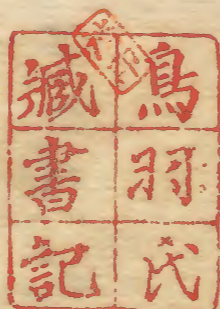 鳥羽氏
臧書記